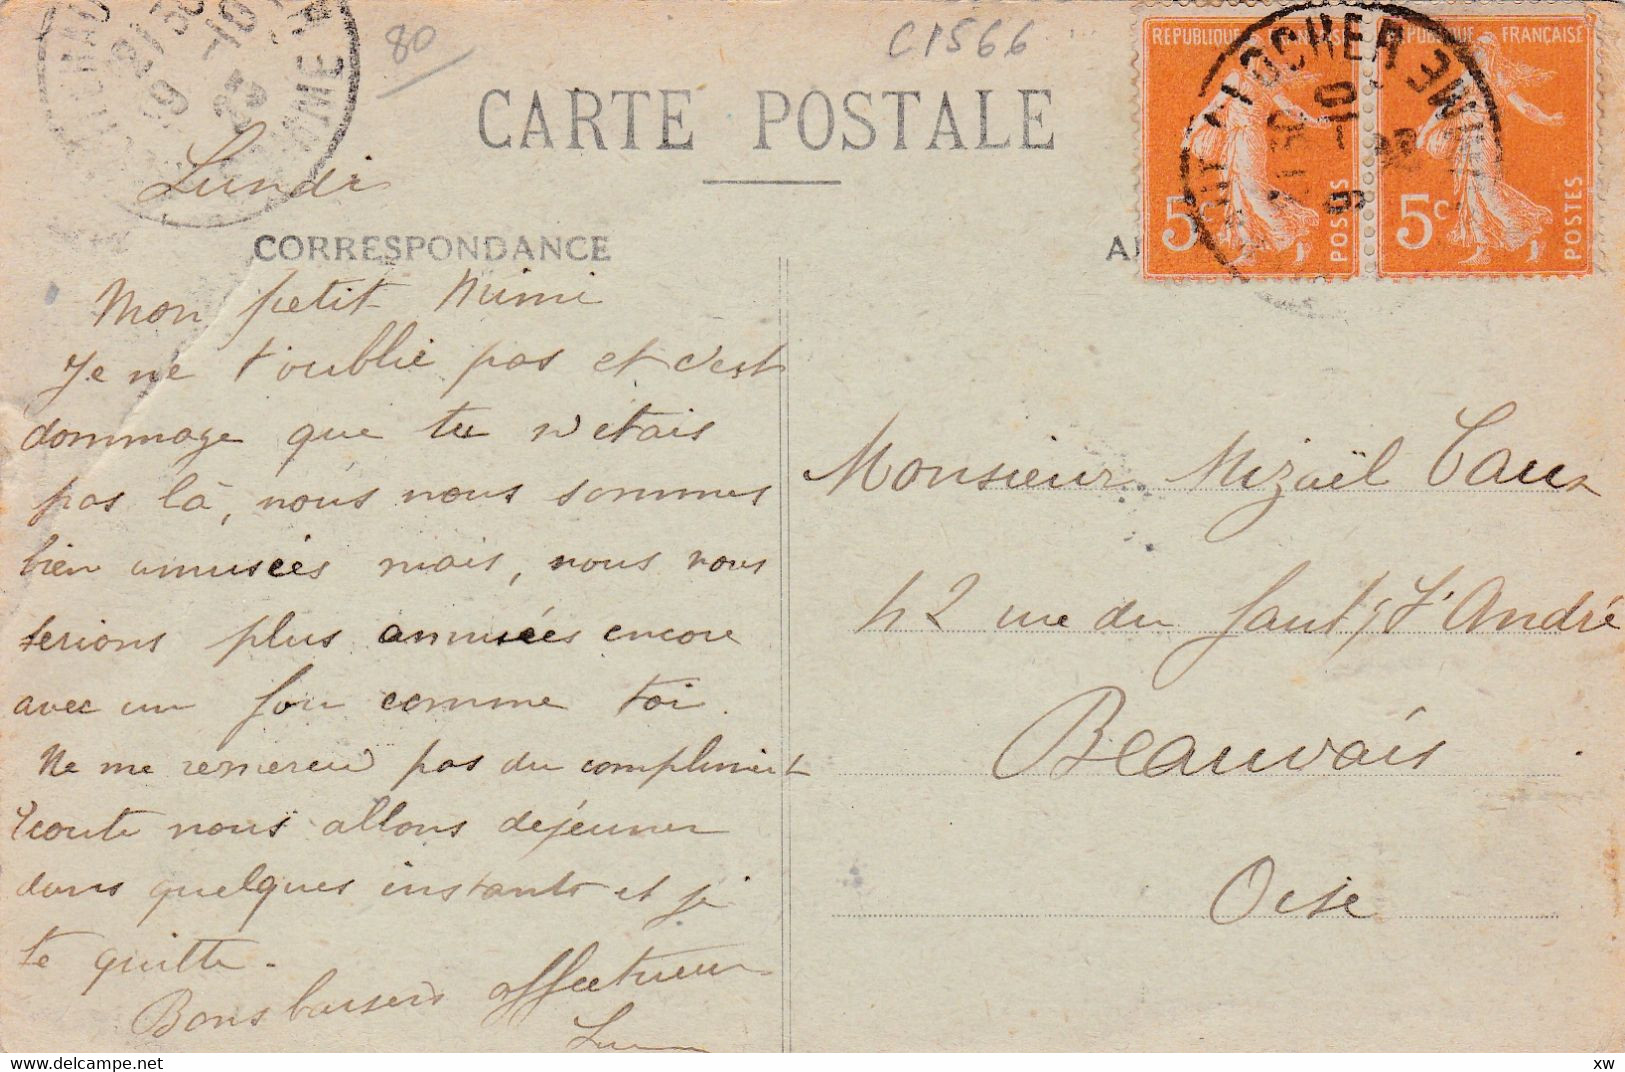 80
C1566
CARTE POSTALE
Lundi
CORRESPONDANCE
Mon petit Mimi
Je ne t'oublie pas et c'est
dommage que tu n'étais
pas là, nous nous sommes
bien amusées mais, nous nous
serions plus amusées encore
avec un fou comme toi.
Ne me remercie pas du compliment
Ecoute nous allons déjeuner
dans quelques instants et je
te quitte.
Bons baisers affectueux
REPUBLIQUE FRANÇAISE
5c
POSTES
REPUBLIQUE FRANÇAISE
5c
POSTES
Monsieur Mizaël Caux
42 rue du Faut, St André
Beauvais
Oise